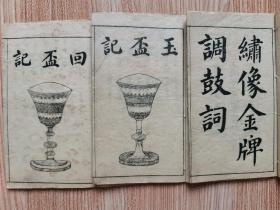 繡像金牌
調鼓詞
玉盃記
回盃記